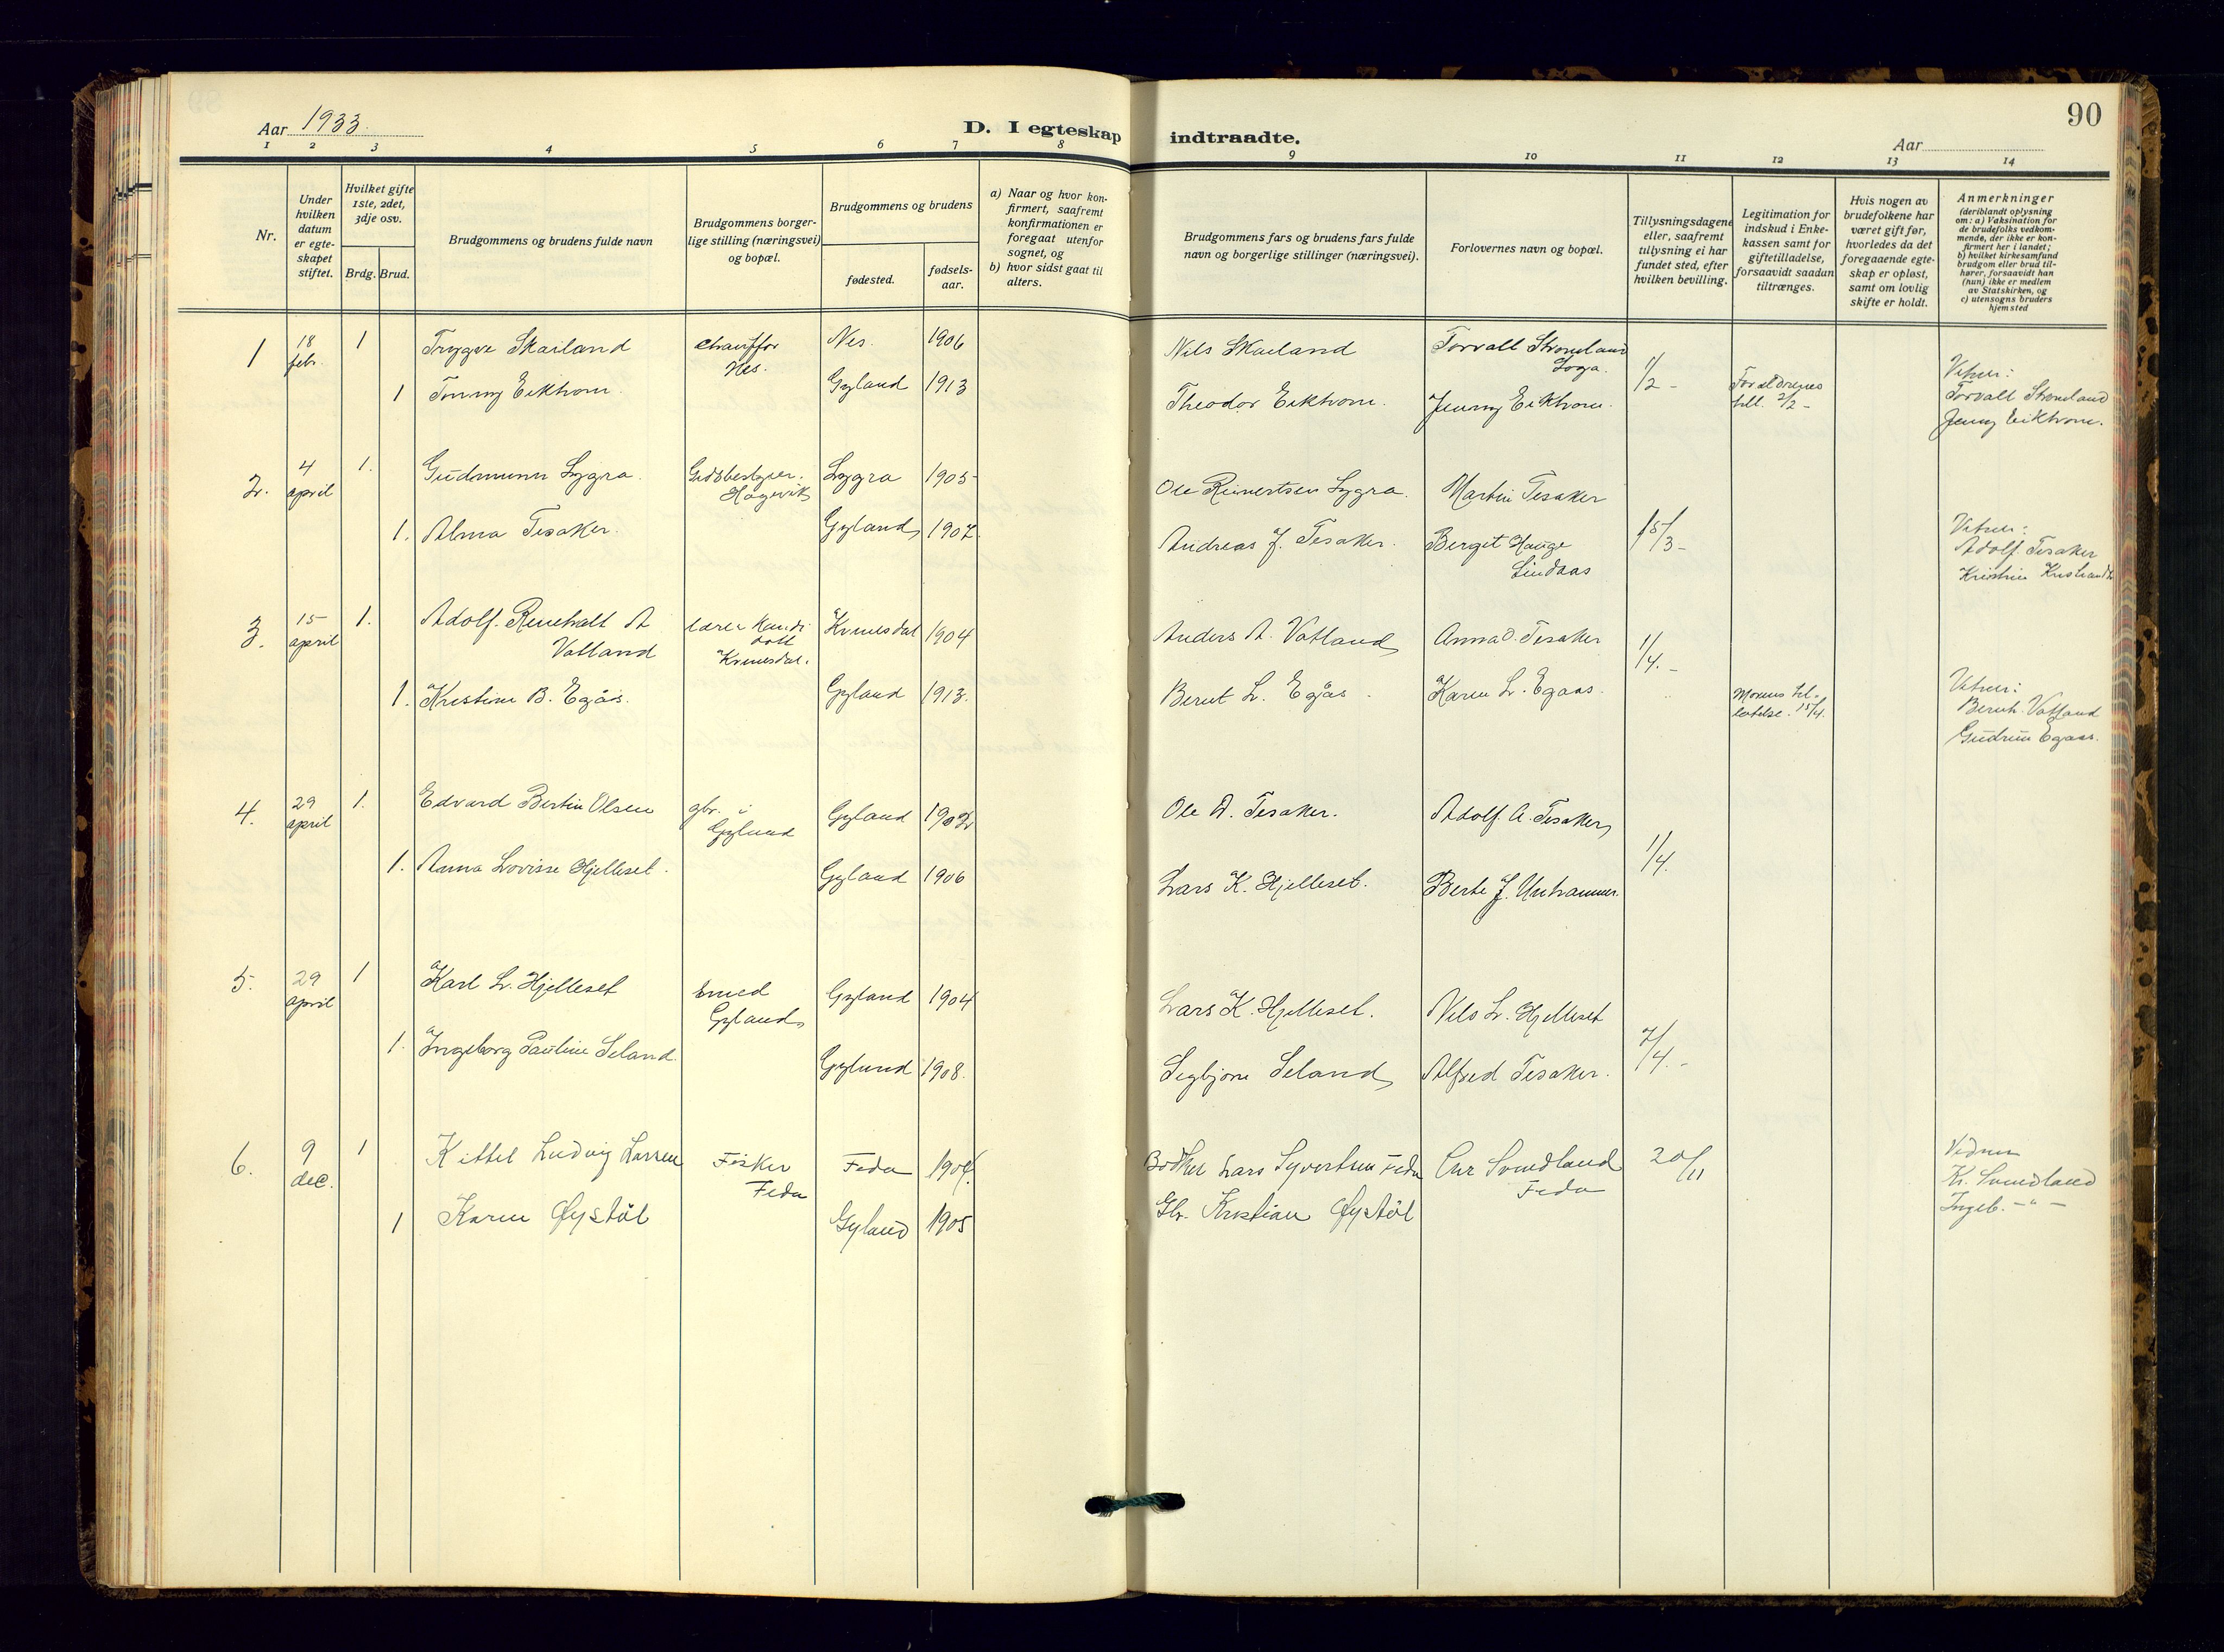 90
Aar 1933.
D. I egteskap indtraadte.
Aar
1 2 3 4 5 6 7 8 9 10 11 12 13 14
Nr.
Under
hvilken
datum
er egte-
skapet
stiftet.
Hvilket gifte
1ste, 2det,
3dje osv.
Brdg. Brud.
Brudgommens og brudens fulde navn
Brudgommens borger-
lige stilling (næringsvei)
og bopæl.
Brudgommens og brudens
fødested.
fødsels-
aar.
a) Naar og hvor kon-
firmert, saafremt
konfirmationen er
foregaat utenfor
sognet, og
b) hvor sidst gaat til
alters.
Brudgommens fars og brudens fars fulde
navn og borgerlige stillinger (næringsvei).
Forlovernes navn og bopæl.
Tillysningsdagene
eller, saafremt
tillysning ei har
fundet sted, efter
hvilken bevilling.
Legitimation for
indskud i Enke-
kassen samt for
giftetilladelse,
forsaavidt saadan
tiltrænges.
Hvis nogen av
brudefolkene har
været gift før,
hvorledes da det
foregaaende egte-
skap er opløst,
samt om lovlig
skifte er holdt.
Anmerkninger
(deriblandt oplysning
om: a) Vaksination for
de brudefolks vedkom-
mende, der ikke er kon-
firmert her i landet;
b) hvilket kirkesamfund
brudgom eller brud til-
hører, forsaavidt han
(hun) ikke er medlem
av Statskirken, og
c) utensogns bruders
hjemsted
1 18 febr. 1 Trygve Skailand
Nes. 1906 Nils Skailand Torvall Stromland
Nes.
1 Eikhom. Gyland 1913 Theodor Eikhom. Jenny Eikhom.
1/2 -
Foreldrenes
till. 2/2 -
Vitner:
Torvall Stromland
Jenny Eikhom.
2. 4 april 1. Gudmunn Lygra. Lygra 1905 Ole Reinertsen Lygra. Martin Tesaker
1. Alma Tesaker. Gyland 1907. Andreas J. Tesaker. Bergit Hauge
Lindaas
15/3 -
Vitner:
Adolf Tesaker
3. 15 april 1. Adolf A
Vatland
Kvinesdal 1904 Anders A. Vatland Anna O. Tesaker
Kvinesdal.
1/4. -
1. Kristine B. Egås. Gyland 1913. Bernt L. Egås. Karen L. Egaas.
Morens til-
latelse. 15/4.
Vitner:
Bernh. Vatland
Gudrun Egaas.
4. 29 april 1. Edvard Bertin Olsen gbr. i
Gyland
Gyland Ole A. Tesaker. Adolf A. Tesaker
1/4.
1. Anna Lovisse Hjelleset. Gyland 1906 Lars K. Hjelleset. Berte J.
5. 29 april 1 Karl L. Hjelleset Smed
Gyland
Gyland 1904 Lars K. Hjelleset. Nils L. Hjelleset
7/4. -
1. Ingeborg Pauline Seland Gyland 1908. Sigbjørn Seland Alfred Tesaker.
6. 9 dec. 1 Kittel Ludvig Larsen Fisker
Feda
Feda Bødker Lars Syvertsen Feda Svindland
Feda
20/11
1 Karen Øystöl Gyland 1905 Gbr. Kristian Øystöl
Vidner
K. Svindland
Ingeb. - " -